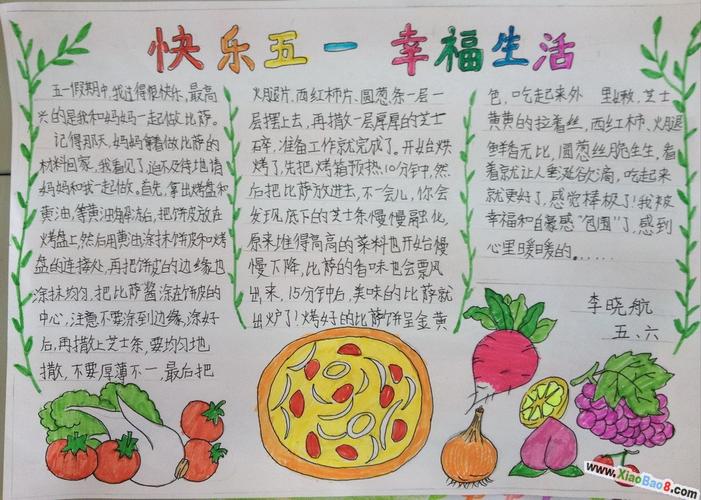 快乐五一 幸福生活
五一假期中,我过得很快乐,最高
兴的是我和妈妈一起做比萨。
记得那天,妈妈拿着做比萨的
材料回家,我看见了,迫不及待地请
妈妈和我一起做。首先,拿出烤盘和
黄油,等黄油解冻后,把饼皮放在
烤盘上,然后用黄油涂抹饼皮和烤
盘的连接处,再把饼皮的边缘也
涂抹均匀,把比萨酱涂在饼皮的
中心,注意不要涂到边缘,涂好
后,再撒上芝士条,要均匀地
撒,不要厚薄不一,最后把
火腿片,西红柿片,圆葱条一层一
层摆上去,再撒一层厚厚的芝士
碎,准备工作就完成了。开始烘
烤了,先把烤箱预热10分钟,然
后把比萨放进去,不一会儿,你会
发现底下的芝士条慢慢融化,
原来堆得高高的菜料也开始慢
慢下降,比萨的香味也会飘风
出来,15分钟后,美味的比萨就
出炉了!烤好的比萨饼呈金黄
色,吃起来外 里嫩,芝士
黄黄的拉着丝,西红柿、火腿
鲜香无比,圆葱丝脆生生,看
着就让人垂涎欲滴,吃起来
就更好了,感觉棒极了!我被
幸福和自豪感“包围”了,感到
心里暖暖的……
李晓航
五、六
www.XiaoBao8.com